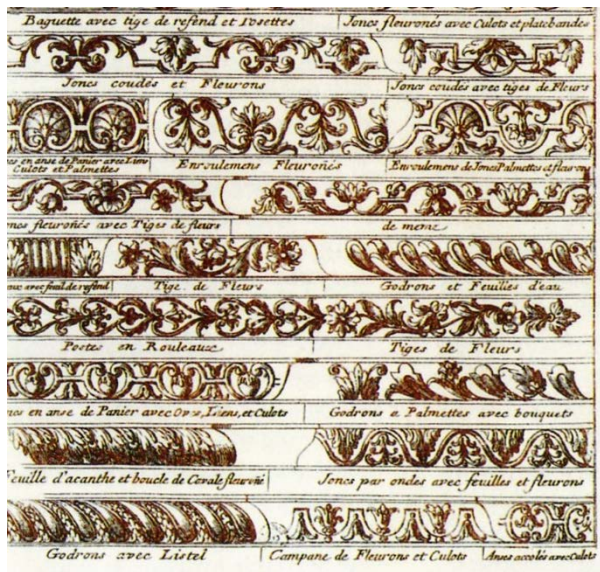 Baguette avec tige de refend et rosettes
Joncs fleuronés avec Culots et platebandes
Joncs coudés et Fleurons
Joncs coudés avec tiges de Fleurs
es en anse de Panier avec Liens
Culots et Palmettes
Enroulemens Fleuroñés
Enroulemens de Joncs Palmettes et fleurons
ncs fleuroñés avec Tiges de fleurs
de meme
aux avec feuil. de refend
Tige de Fleurs
Godrons et Feuilles d'eau
Postes en Rouleaux
Tiges de Fleurs
ncs en anse de Panier avec Ove, Liens, et Culots
Godrons a Palmettes avec bouquets
Feuille d'acanthe et boucle de fleuroñé
Joncs par ondes avec feuilles et fleurons
Godrons avec Listel
Campane de Fleurons et Culots
Anses accolés avec Culots